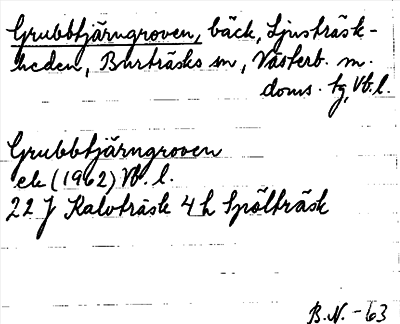 Grubbtjärngroven, bäck, Ljusträsk-
heden, Burträsks sn, Västerb. m.
doms. tg, Vb. l.
Grubbtjärngroven
ek (1962) Vb. l.
22 J Kalvträsk 4 h Spölträsk
B.N. -63